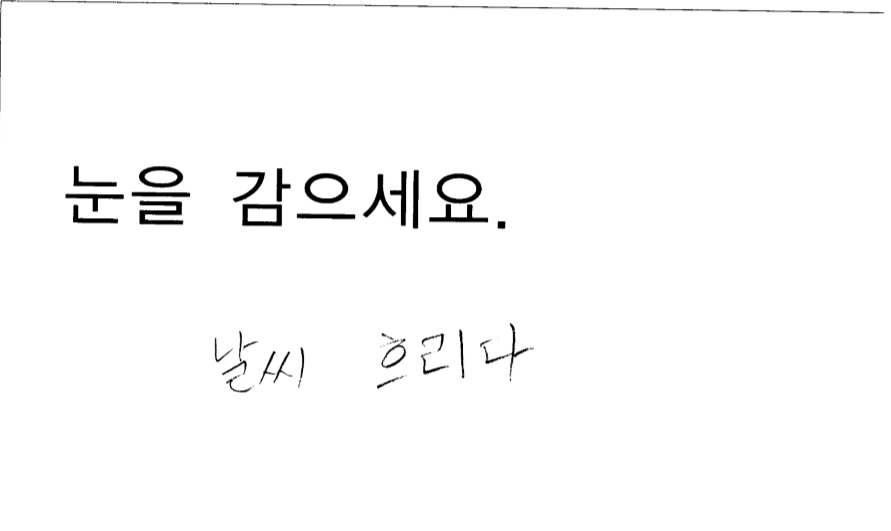 눈을 감으세요.
날씨 흐리다